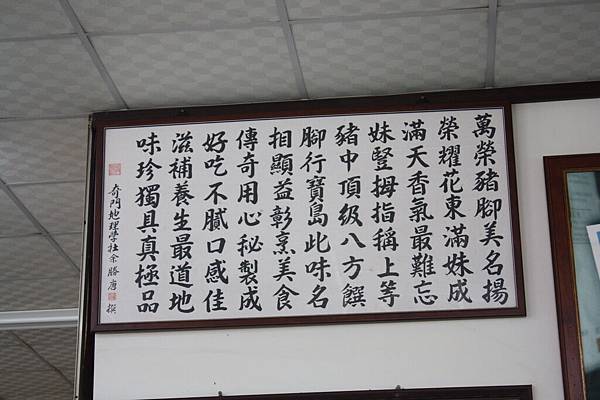 萬榮豬腳美名揚
榮耀花東滿妹成
滿天香氣最難忘
妹豎拇指稱上等
豬中頂級八方饌
腳行寶島此味名
相顯益彰烹美食
傳奇用心秘製成
好吃不膩口感佳
滋補養生最道地
味珍獨具真極品
奇門地理學社余勝唐 撰